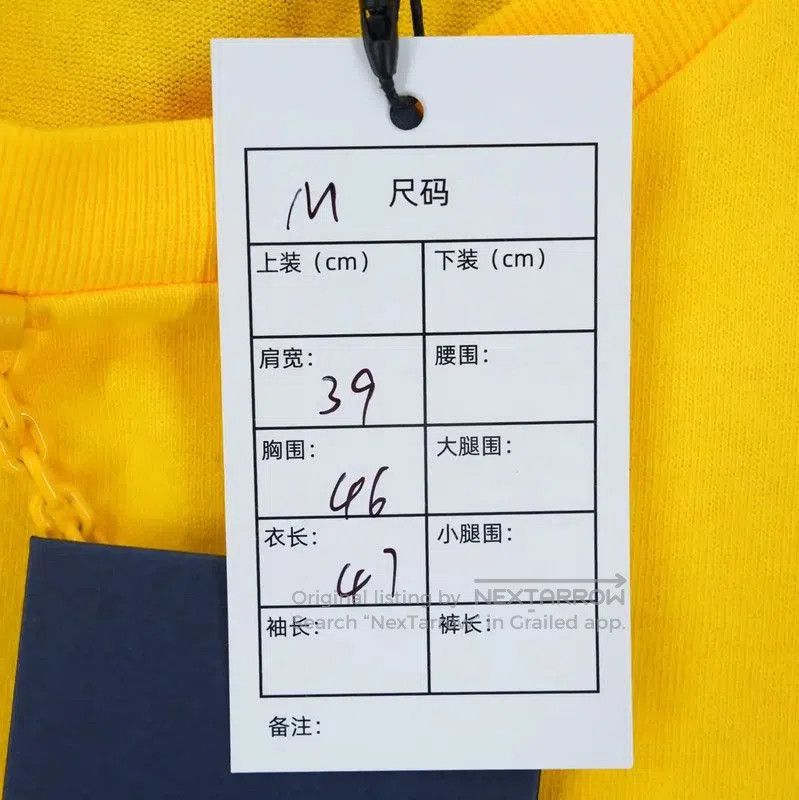 M 尺码
上装（cm） 下装（cm）
肩宽： 39 腰围：
胸围： 46 大腿围：
衣长： 47 小腿围：
Original listing by NEXTARROW
Search “NexTarrow” in Grailed app.
袖长： 裤长：
备注：